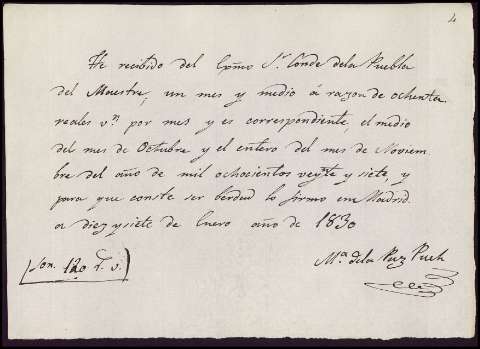 4
He recibido del Exmo Sr. Conde dela Puebla
del Maestre, un mes y medio á razon de ochenta
reales vn. por mes y es correspondiente, el medio
del mes de Octubre y el entero del mes de Noviem
bre del año de mil ochocientos veynte y siete, y
para que conste ser berdad lo firmo em Madrid
a diez y siete de Enero año de 1830
Son 120 r. v.
Ma. dela Paz Puch